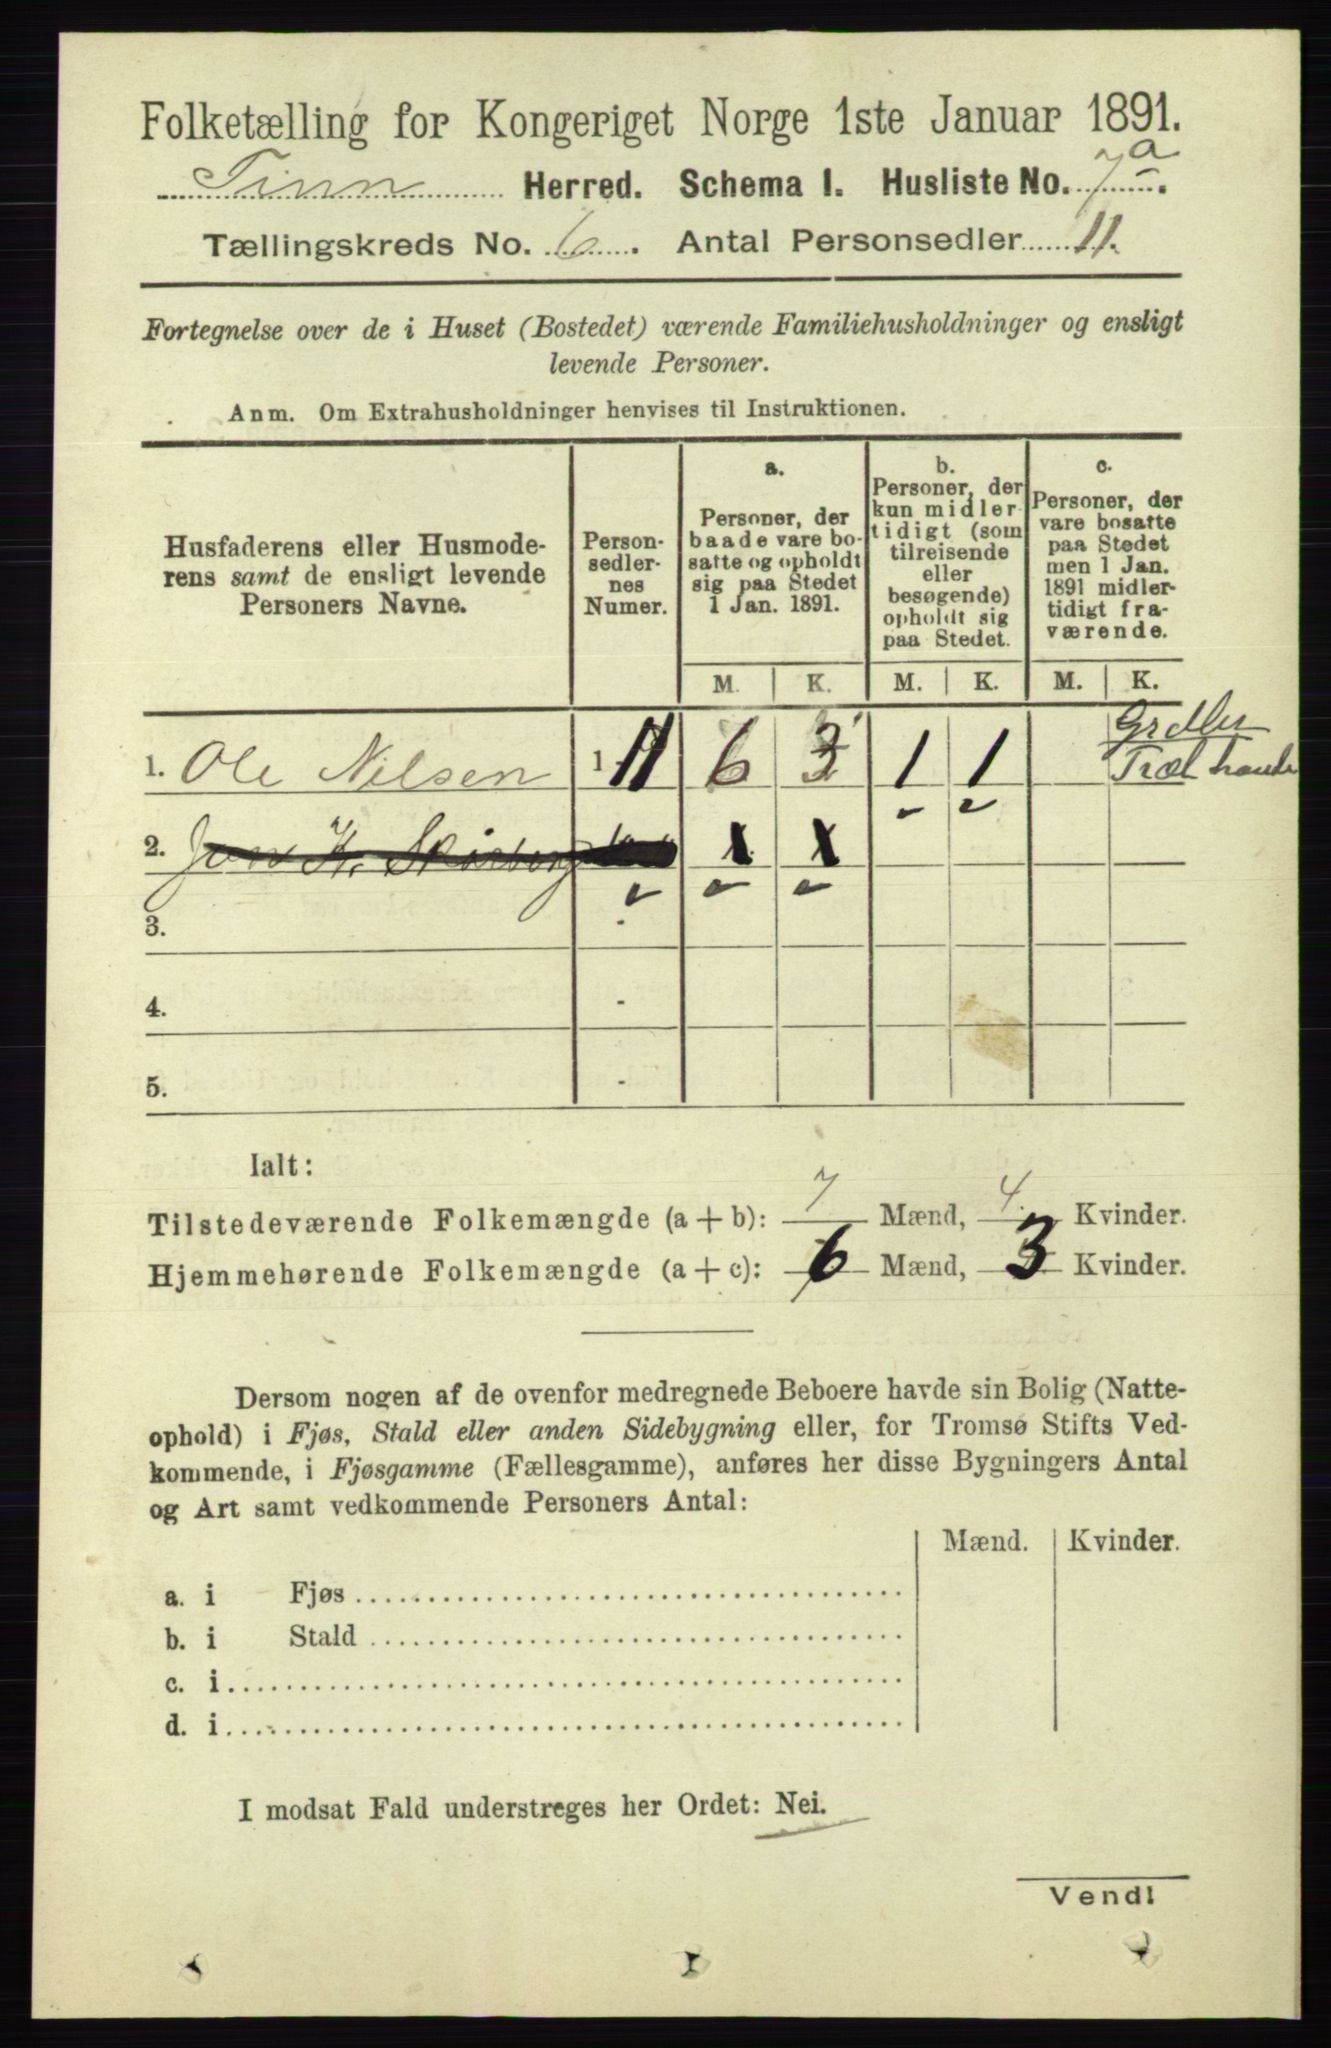 Folketælling for Kongeriget Norge 1ste Januar 1891.
Tinn Herred. Schema I. Husliste No. 7a.
Tællingskreds No. 6. Antal Personsedler 11.
Fortegnelse over de i Huset (Bostedet) værende Familiehusholdninger og ensligt
levende Personer.
Anm. Om Extrahusholdninger henvises til Instruktionen.
Husfaderens eller Husmode-
rens samt de ensligt levende
Personers Navne.
Person-
sedler-
nes
Numer.
a.
Personer, der
baade vare bo-
satte og opholdt
sig paa Stedet
1 Jan. 1891.
b.
Personer, der
kun midler-
tidigt (som
tilreisende
eller
besøgende)
opholdt sig
paa Stedet.
c.
Personer, der
vare bosatte
paa Stedet
men 1 Jan.
1891 midler-
tidigt fra-
værende.
M. K. M. K. M. K.
1. Ole Nilsen 1 - 11 6 3 1 1
2. Jon K. x x
3. -
4. -
5. -
Ialt:
Tilstedeværende Folkemængde (a + b): 7 Mænd, 4 Kvinder.
Hjemmehørende Folkemængde (a + c): 6 Mænd, 3 Kvinder.
Dersom nogen af de ovenfor medregnede Beboere havde sin Bolig (Natte-
ophold) i Fjøs, Stald eller anden Sidebygning eller, for Tromsø Stifts Ved-
kommende, i Fjøsgamme (Fællesgamme), anføres her disse Bygningers Antal
og Art samt vedkommende Personers Antal:
Mænd. Kvinder.
a. i Fjøs
b. i Stald
c. i
d. i
I modsat Fald understreges her Ordet: Nei.
Vend!